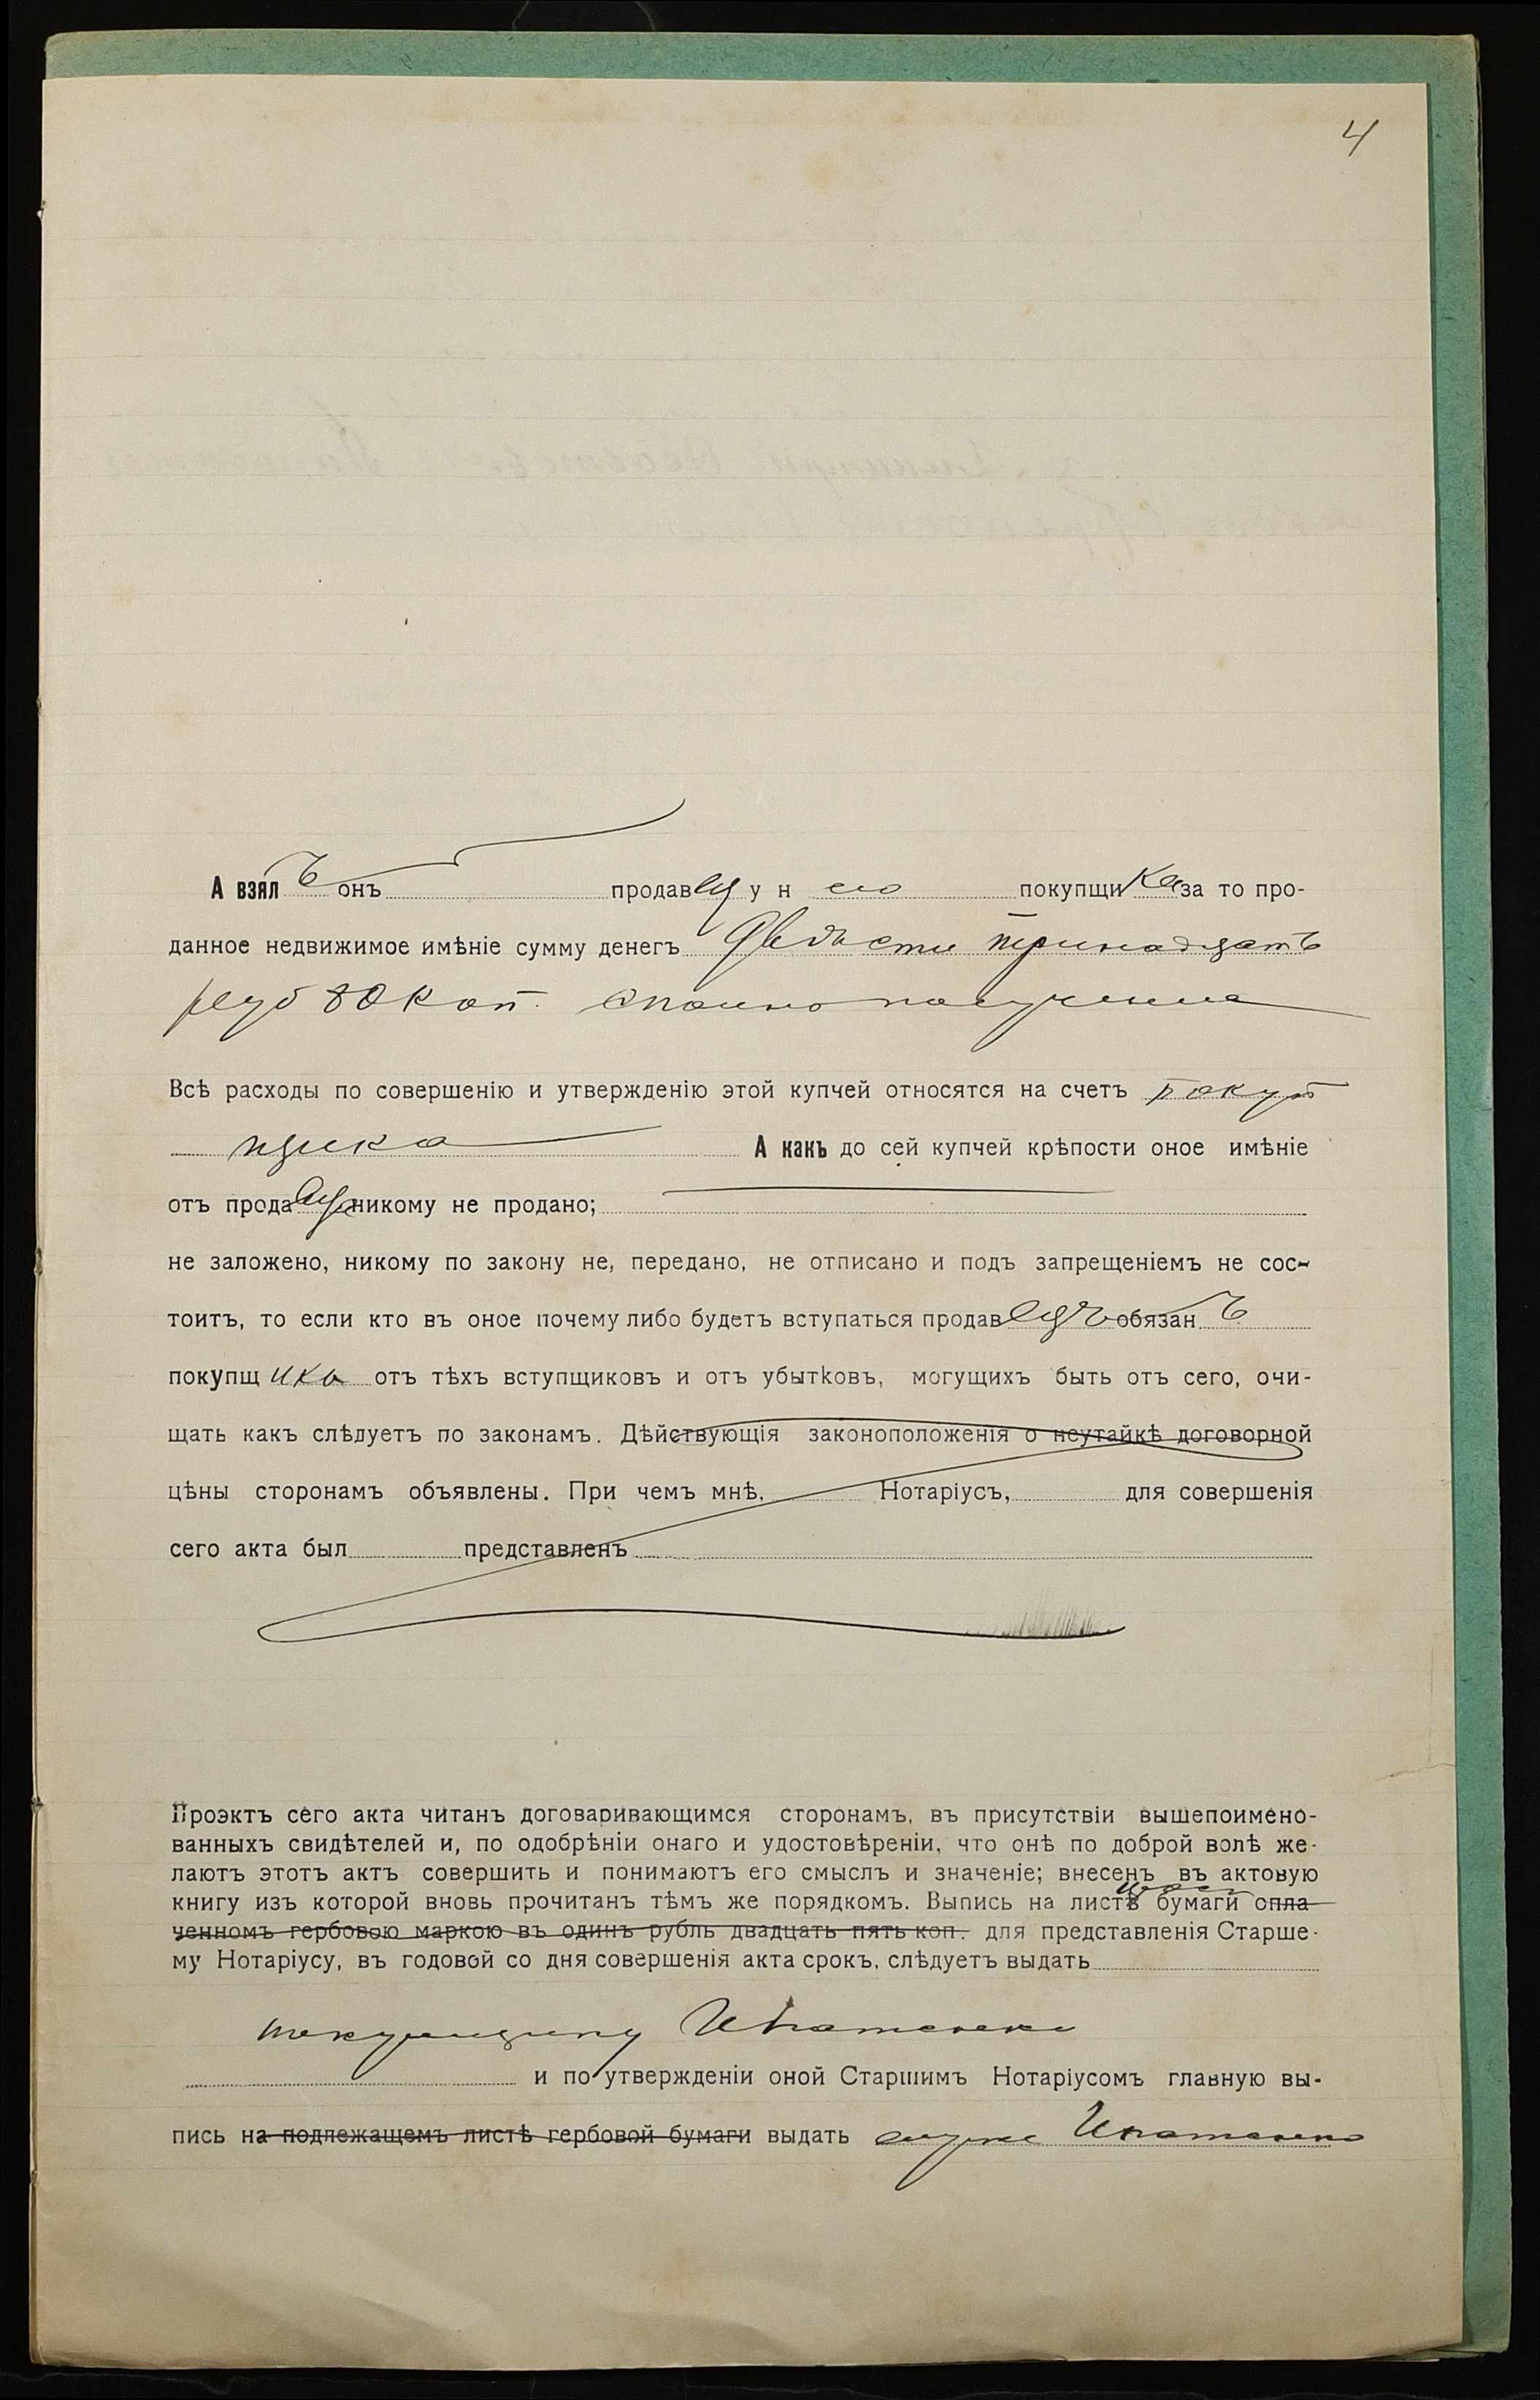 4
А взялъ онъ продавецъ у него покупщика за то про-
данное недвижимое имѣніе сумму денегъ Двѣсти тринадцать
руб 80 коп. сполна полученно
Всѣ расходы по совершенію и утвержденію этой купчей относятся на счетъ покуп
щика А какъ до сей купчей крѣпости оное имѣніе
отъ продавца никому не продано;
не заложено, никому по закону не, передано, не отписано и подъ запрещеніемъ не сос-
тоитъ, то если кто въ оное почему либо будетъ вступаться продавецъ обязанъ
покупщика отъ тѣхъ вступщиковъ и отъ убытковъ, могущихъ быть отъ сего, очи-
щать какъ слѣдуетъ по законамъ. Дѣйствующія законоположенія о неутайкѣ договорной
цѣны сторонамъ объявлены. При чемъ мнѣ, Нотаріусъ, для совершенія
сего акта был представленъ
Проэктъ сего акта читанъ договаривающимся сторонамъ, въ присутствіи вышепоимено-
ванныхъ свидѣтелей и, по одобрѣніи онаго и удостовѣреніи, что онѣ по доброй волѣ же-
лаютъ этотъ актъ совершить и понимаютъ его смыслъ и значеніе; внесенъ въ актовую
книгу изъ которой вновь прочитанъ тѣмъ же порядкомъ. Выпись на листѣ бумаги опла-
ченномъ гербовою маркою въ одинъ рубль двадцать пять коп. для представленія Старше-
му Нотаріусу, въ годовой со дня совершенія акта срокъ, слѣдуетъ выдать
покупщику Игнатенко
и по утвержденіи оной Старшимъ Нотаріусомъ главную вы-
пись на подлежащемъ листѣ гербовой бумаги выдать ему же Игнатенко